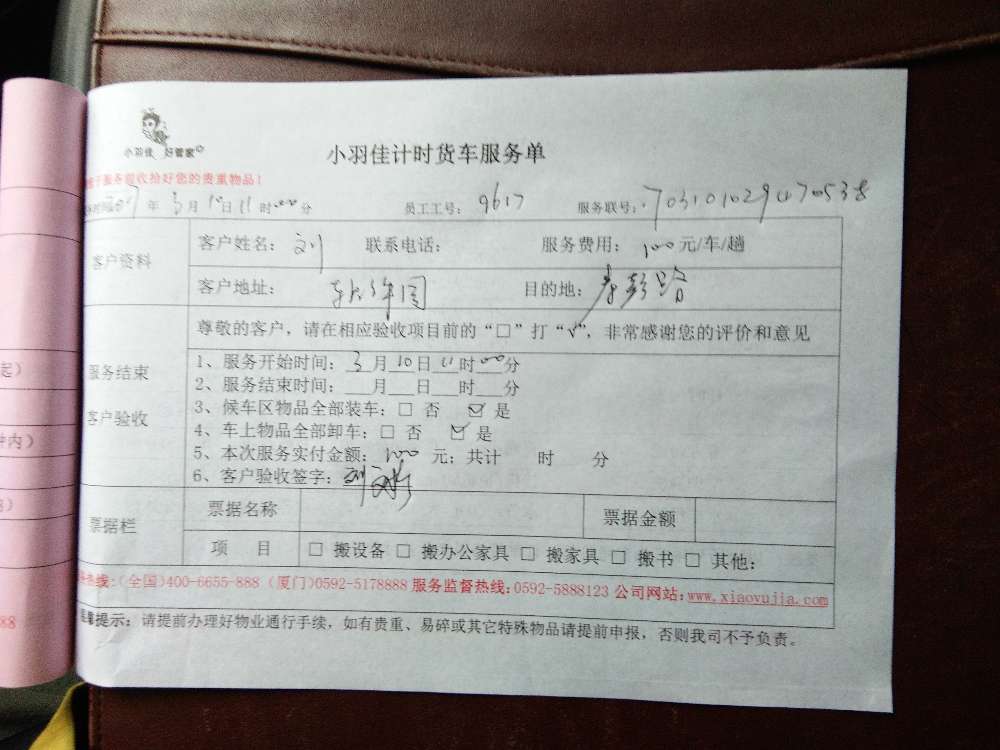 小羽佳 好管家
小羽佳计时货车服务单
服务前收拾好您的贵重物品!
年 3月10日11时00分 员工工号: 9617 服务联号: 703101029470538
客户资料
客户姓名: 刘 联系电话: 服务费用: 100元/车/趟
客户地址: 目的地:
尊敬的客户，请在相应验收项目前的“□”打“√”，非常感谢您的评价和意见
服务结束
客户验收
1、服务开始时间: 3月10日11时00分
2、服务结束时间: 月 日 时 分
3、候车区物品全部装车: □ 否 ☑ 是
4、车上物品全部卸车: □ 否 ☑ 是
5、本次服务实付金额: 100 元; 共计 时 分
6、客户验收签字: 刘
票据栏
票据名称 票据金额
项 目 □ 搬设备 □ 搬办公家具 □ 搬家具 □ 搬书 □ 其他:
热线:(全国)400-6655-888 (厦门)0592-5178888 服务监督热线:0592-5888123 公司网站:www.xiaoyujia.com
提示: 请提前办理好物业通行手续，如有贵重、易碎或其它特殊物品请提前申报，否则我司不予负责。
起)
钟内)
88